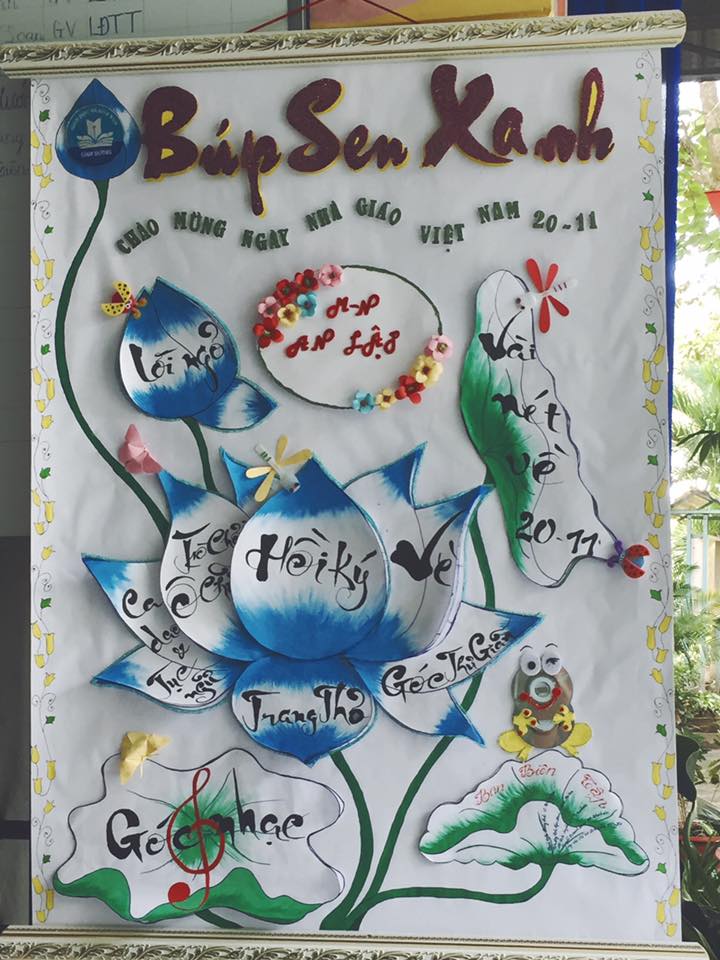 GV LĐTT
Búp Sen Xanh
CHÀO MỪNG NGÀY NHÀ GIÁO VIỆT NAM 20-11
Lời ngỏ
M-N
AN LẬP
Vài
nét
về
20-11
Hồi Ký
Vè
Ca
dao
&
Tục
ngữ
Trang Thơ
Góc Thư Giãn
Góc nhạc
Ban Biên Tập